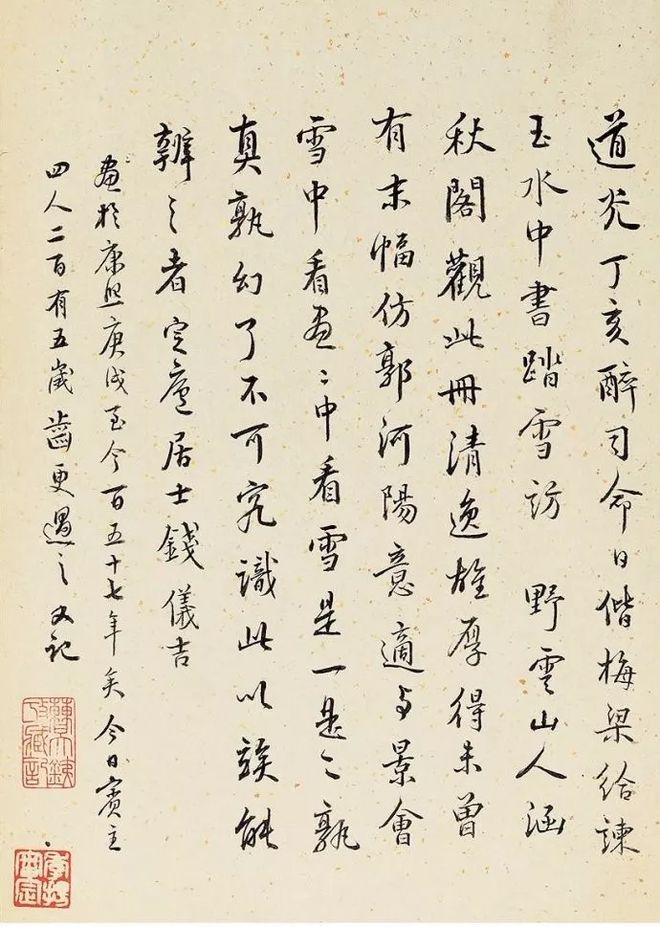 道光丁亥醉司命日偕梅梁給諫
玉水中書踏雪訪 野雲山人涵
秋閣觀此冊清逸雄厚得未曾
有末幅仿郭河陽意適与景會
雪中看畫〻中看雪是一是二孰
真孰幻了不可究識此以竢能
辨之者定廬居士錢儀吉
畫於康熙庚戌至今百五十七年矣今日賓主
四人二百有五歲齒更遇之又記